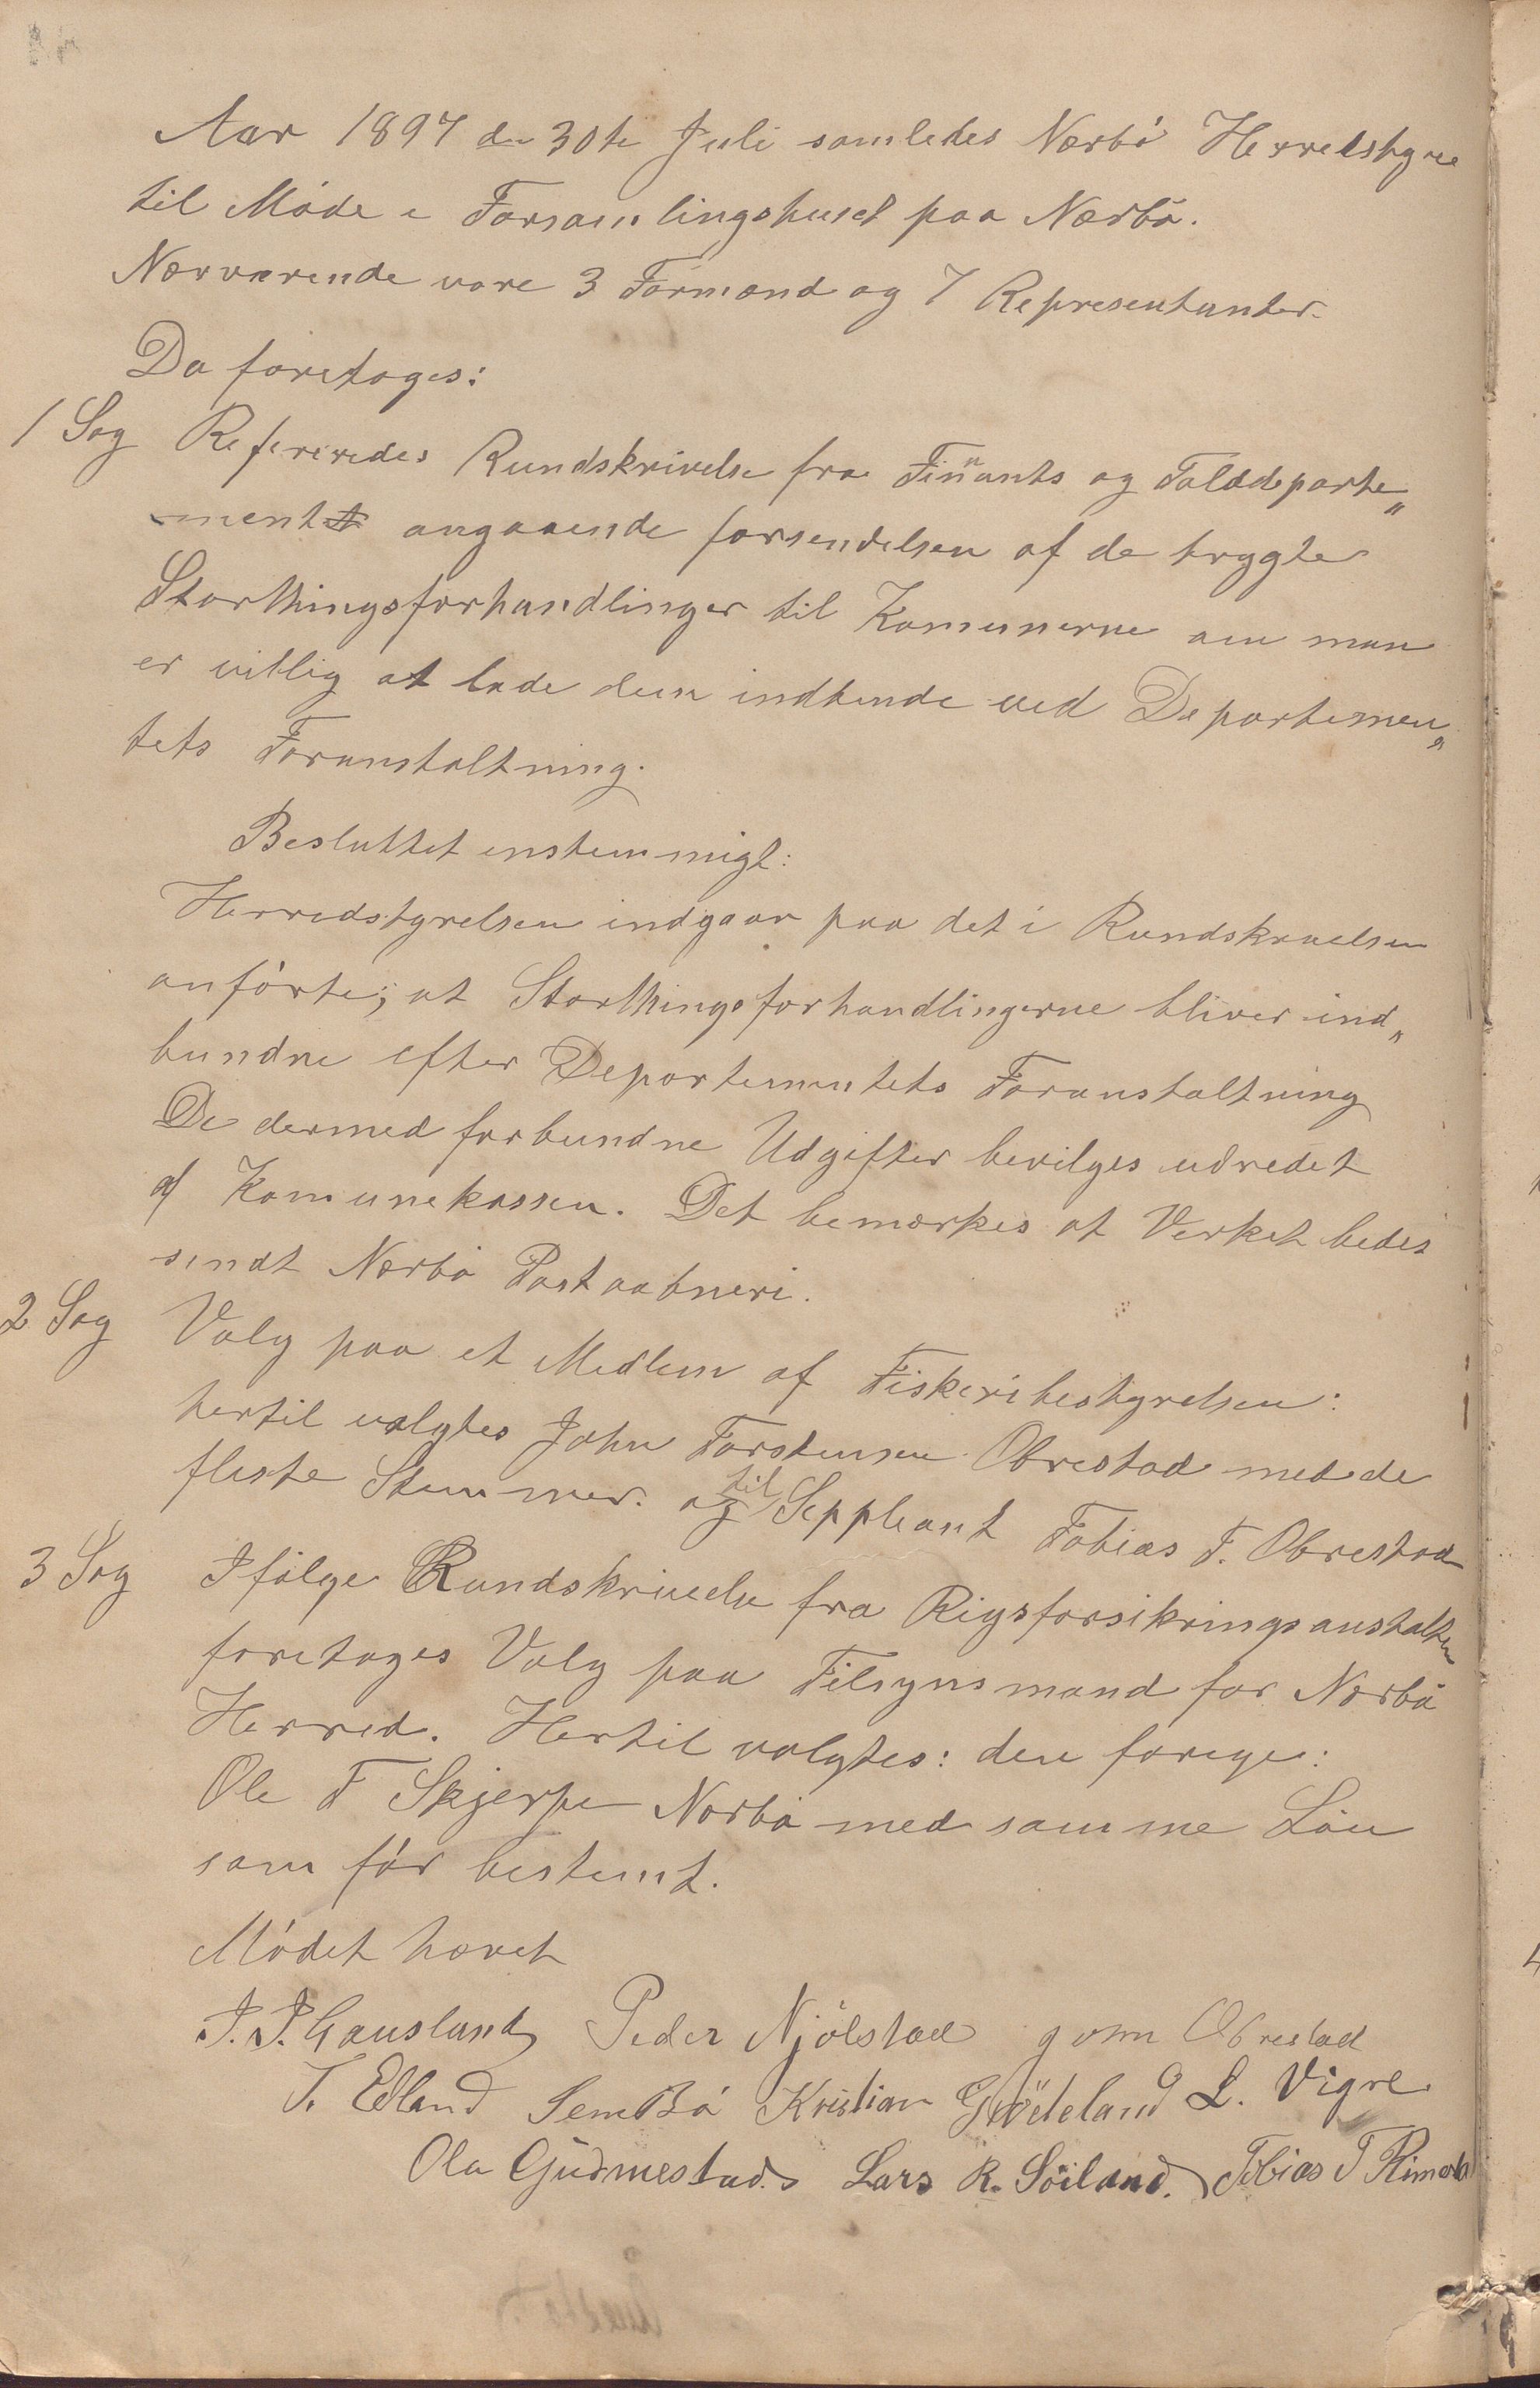 Aar 1897 den 30te Juli samledes Nærbø Herredstyre
til Møde i Forsamlingshuset paa Nærbø.
Nærværende vare 3 Formænd og 7 Representanter.
Da foretoges:
1 Sag Refereredes Rundskrivelse fra Finants og Tolddeparte„
mentet angaaende forsendelsen af de trygte
Storthingsforhandlinger til Komunerne om man
er villig at lade dem indbinde ved Departemen„
tets Foranstaltning.
Besluttet enstemmigt:
Herredstyrelsen indgaar paa det i Rundskrivelsen
anførte; at Storthingsforhandlingerne bliver ind„
bundne efter Departementets Foranstaltning
De dermed forbundne Udgifter bevilges udredet
af Komunekassen. Det bemærkes at Verket bedes
sendt Nærbø Postaabneri.
2 Sag Valg paa et Medlem af Fiskeribestyrelsen:
hertil valgtes John Torstensen Obrestad med de
fleste Stemmer. og til Seppleant Tobias T. Obrestad
3 Sag Ifølge Rundskrivelse fra Rigsforsikringsanstalten
foretoges Valg paa Tilsynsmand for Nærbø
Herred. Hertil valgtes: den forrige:
Ole T Skjerpe Nærbø med samme Løn
som før bestemt.
Mødet hævet
J. J. Gausland Peder Njølstad Jonn Obrestad
T. Edland Sem Bø Kristian Grødeland L. Vigre
Ola Gudmestad. Lars R. Söiland. Tobias T Rimestad